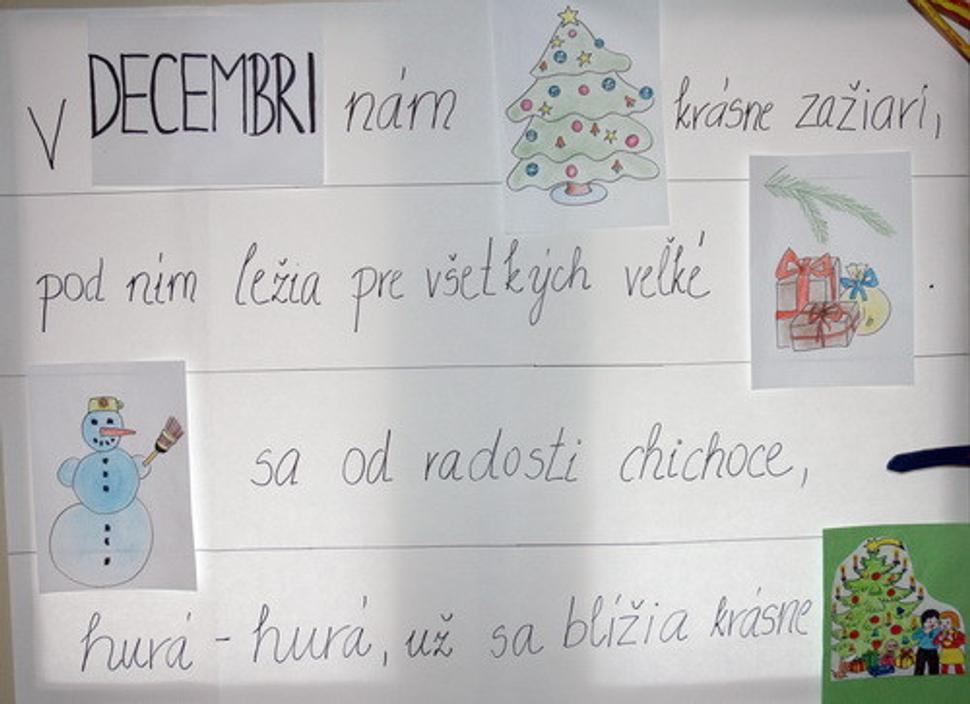 V DECEMBRI nám krásne zažiari,
pod ním ležia pre všetkých veľké .
sa od radosti chichoce,
hurá - hurá, už sa blížia krásne